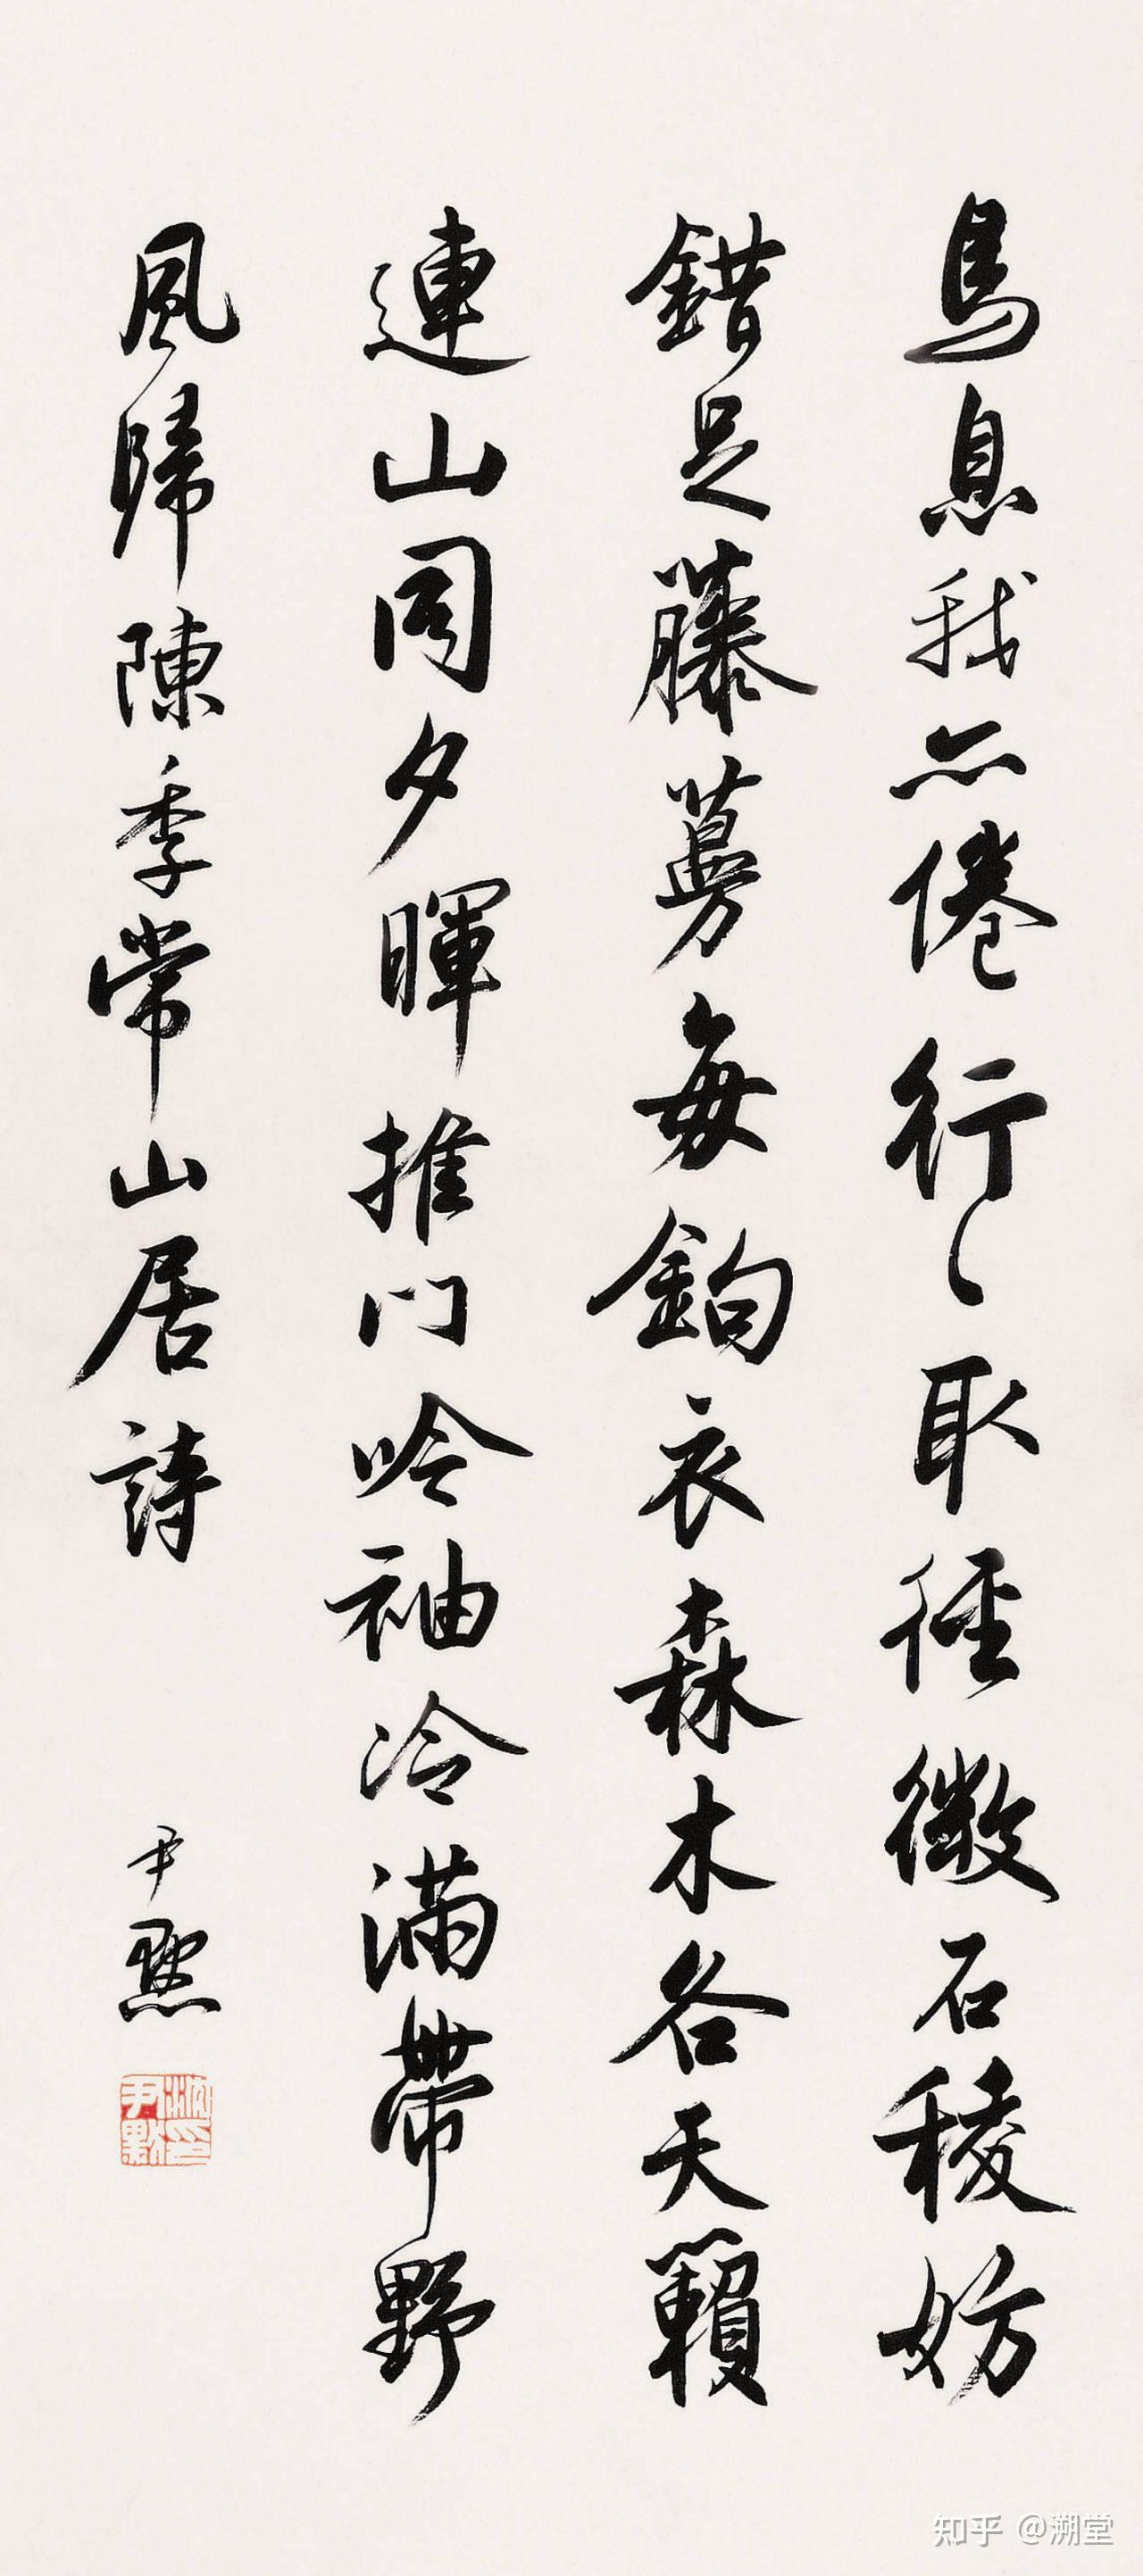 鳥息我亦倦行〻取徑微石稜妨
錯足藤蔓每鉤衣森木各天籟
連山同夕暉推門吟袖冷滿帶野
風歸陳季常山居詩
尹默
沈印尹默
知乎 @溯堂